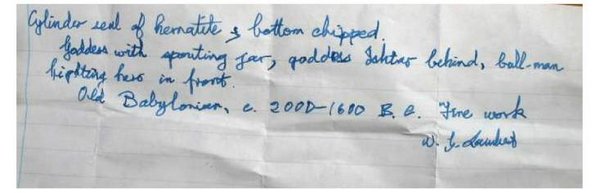 Cylinder seal of hematite; bottom chipped.
Goddess with spouting jar, goddess Ishtar behind, bull-man
fighting hero in front.
Old Babylonian, c. 2000-1600 B.C. Fine work
W. G. Lambert